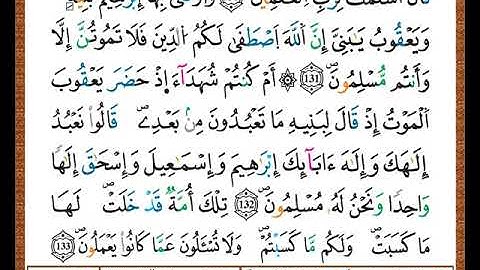 قَالَ أَسْلَمْتُ لِرَبِّ الْعَٰلَمِينَ ۝١٣١ وَوَصَّىٰ بِهَا إِبْرَٰهِيمُ بَنِيهِ
وَيَعْقُوبُ يَٰبَنِيَّ إِنَّ اللَّهَ اصْطَفَىٰ لَكُمُ الدِّينَ فَلَا تَمُوتُنَّ إِلَّا
وَأَنتُم مُّسْلِمُونَ ۝١٣١ ۞ أَمْ كُنتُمْ شُهَدَآءَ إِذْ حَضَرَ يَعْقُوبَ
الْمَوْتُ إِذْ قَالَ لِبَنِيهِ مَا تَعْبُدُونَ مِنۢ بَعْدِى قَالُوا نَعْبُدُ
إِلَٰهَكَ وَإِلَٰهَ ءَابَآئِكَ إِبْرَٰهِيمَ وَإِسْمَٰعِيلَ وَإِسْحَٰقَ إِلَٰهًا
وَٰحِدًا وَنَحْنُ لَهُۥ مُسْلِمُونَ ۝١٣٢ تِلْكَ أُمَّةٌ قَدْ خَلَتْ لَهَا
مَا كَسَبَتْ وَلَكُم مَّا كَسَبْتُمْ وَلَا تُسْـَٔلُونَ عَمَّا كَانُوا يَعْمَلُونَ ۝١٣٣